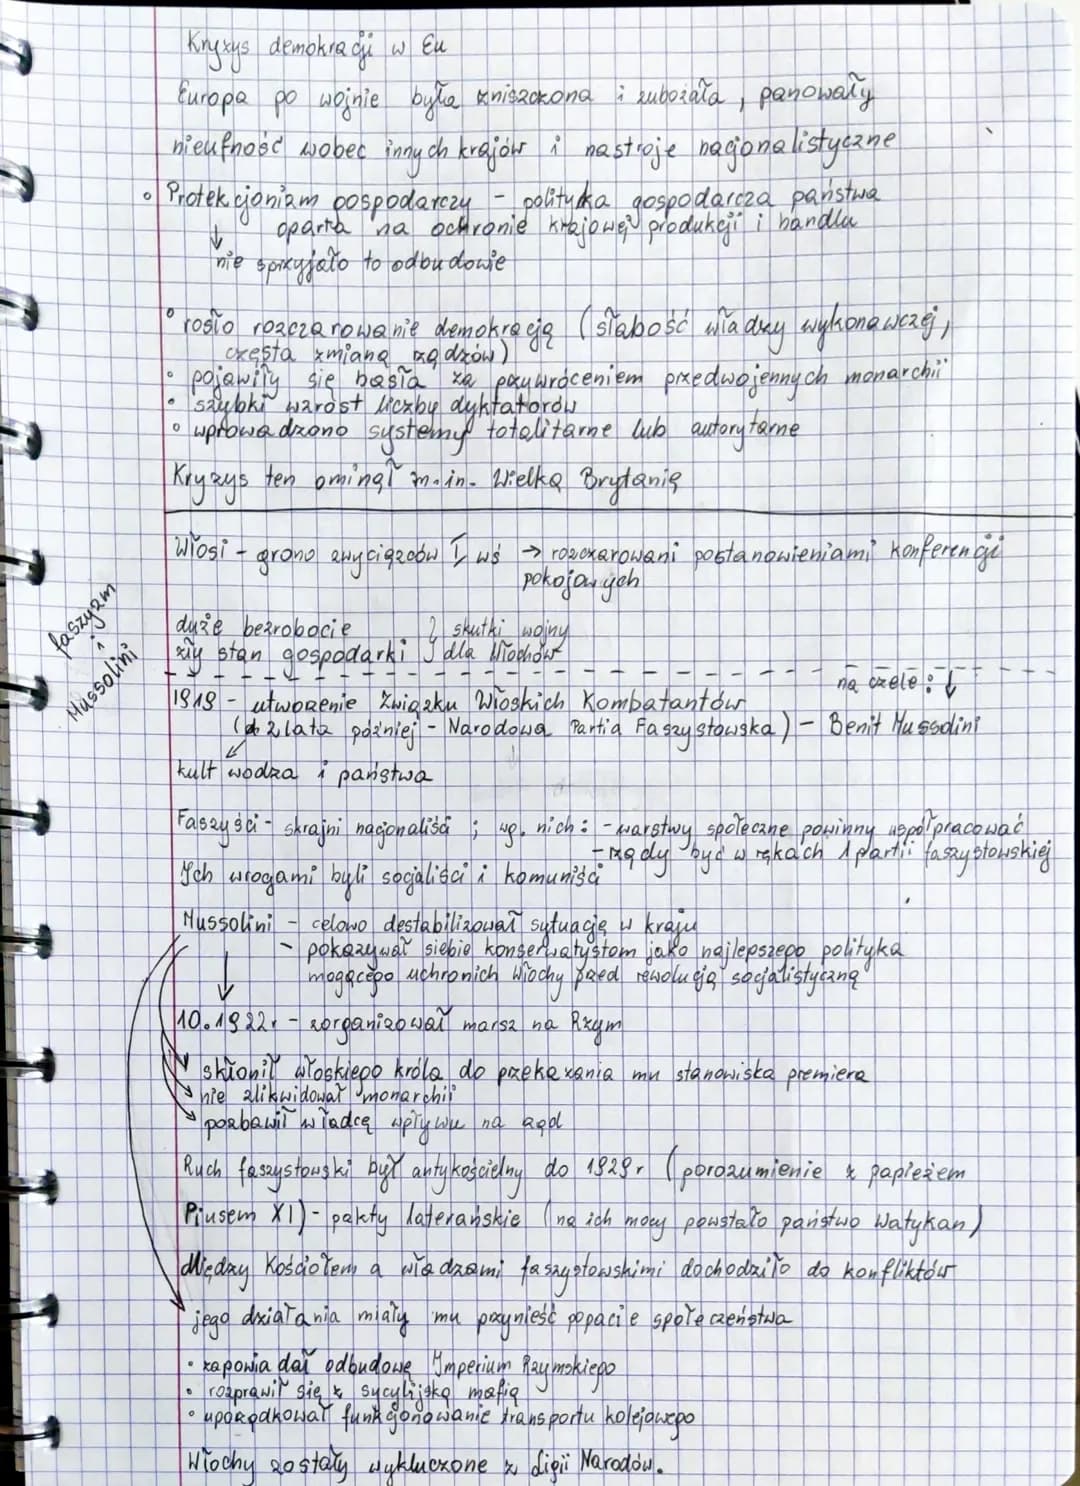 Kryzys demokracji w Eu
Europa po wojnie była zniszczona i zubożała, panowały
nieufność wobec innych krajów i nastroje nacjonalistyczne
• Protekcjonizm gospodarczy - polityka gospodarcza państwa
oparta na ochronie krajowej produkcji i handlu
↓
nie sprzyjało to odbudowie
• rosło rozczarowanie demokracją (słabość władzy wykonawczej,
częsta zmiana rządzów)
• pojawiły się hasła za przywróceniem przedwojennych monarchii
• szybki wzrost liczby dyktatorów
• wprowadzono systemy totalitarne lub autorytarne
Kryzys ten ominął m.in. Wielką Brytanię
Włosi - grono zwycięzców I wś → rozczarowani postanowieniami konferencji
pokojowych
faszyzm
i
Mussolini
duże bezrobocie } skutki wojny
zły stan gospodarki } dla Włochów
na czele: ↓
1919 - utworzenie Związku Włoskich Kombatantów
(2 lata później - Narodowa Partia Faszystowska) - Benit Mussolini
kult wodza i państwa
Faszyści - skrajni nacjonaliści ; wg. nich: - warstwy społeczne powinny współpracować
- rządy być w rękach 1 partii faszystowskiej
Ich wrogami byli socjaliści i komuniści
Mussolini - celowo destabilizował sytuację w kraju
- pokazywał siebie konserwatystom jako najlepszego polityka
mogącego uchronich Włochy przed rewolucją socjalistyczną
10.1922r - zorganizował marsz na Rzym
skłonił włoskiego króla do przekazania mu stanowiska premiera
nie zlikwidował monarchii
pozbawił władcę wpływu na rząd
Ruch faszystowski był antykościelny do 1929r (porozumienie z papieżem
Piusem XI) - pakty laterańskie (na ich mocy powstało państwo Watykan)
Między Kościołem a władzami faszystowskimi dochodziło do konfliktów
jego działania miały mu przynieść popacie społeczeństwa
• zapowiadał odbudowę Imperium Rzymskiego
• rozprawił się z sycylijską mafią
• uporządkował funkcjonowanie transportu kolejowego
Włochy zostały wykluczone z Ligii Narodów.